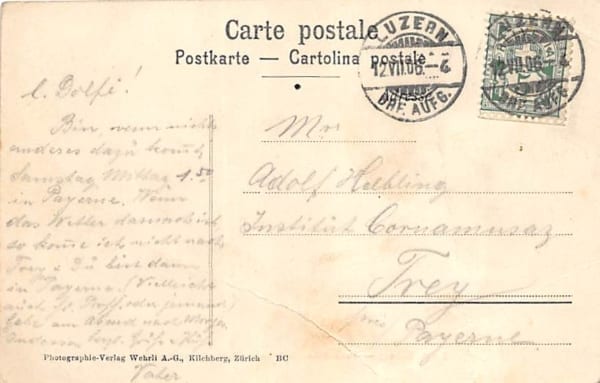 Carte postale
Postkarte — Cartolina postale
LUZERN
12.VII.06.-4
BRF. AUFG.
LUZERN
12.VII.06.
BRF. AUFG.
l. Dolfi!
Bin, wenn nichts
anderes dazu kommt,
Samstag Mittag 1.50
in Payerne. Wenn
das Wetter darnach ist,
so komme ich nicht nach
Trey & Du bist dann
in Payerne. (Vielleicht
auch Hr. Proff. oder jemand)
Gehe am Abend nach
Vater
Mr
Adolf Helbling
Institut Cornamusaz
Trey
près
Payerne
Photographie-Verlag Wehrli A.-G., Kilchberg, Zürich BC